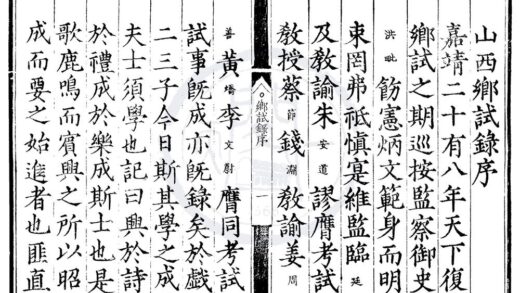 山西鄉試錄序
嘉靖二十有八年天下復
鄉試之期巡按監察御史
洪毗飭憲炳文範身而明
束罔弗祗慎寔維監臨廷
及敎諭朱安道謬膺考試
敎授蔡節錢敎諭姜周
鄉試錄序
一
善黃李文尉膺同考試
試事旣成亦旣錄矣於戲
二三子今日斯其學之成
夫士須學也記曰興於詩
於禮成於樂成斯士也是
歌鹿鳴而賓興之所以昭
成而要之始進者也匪直